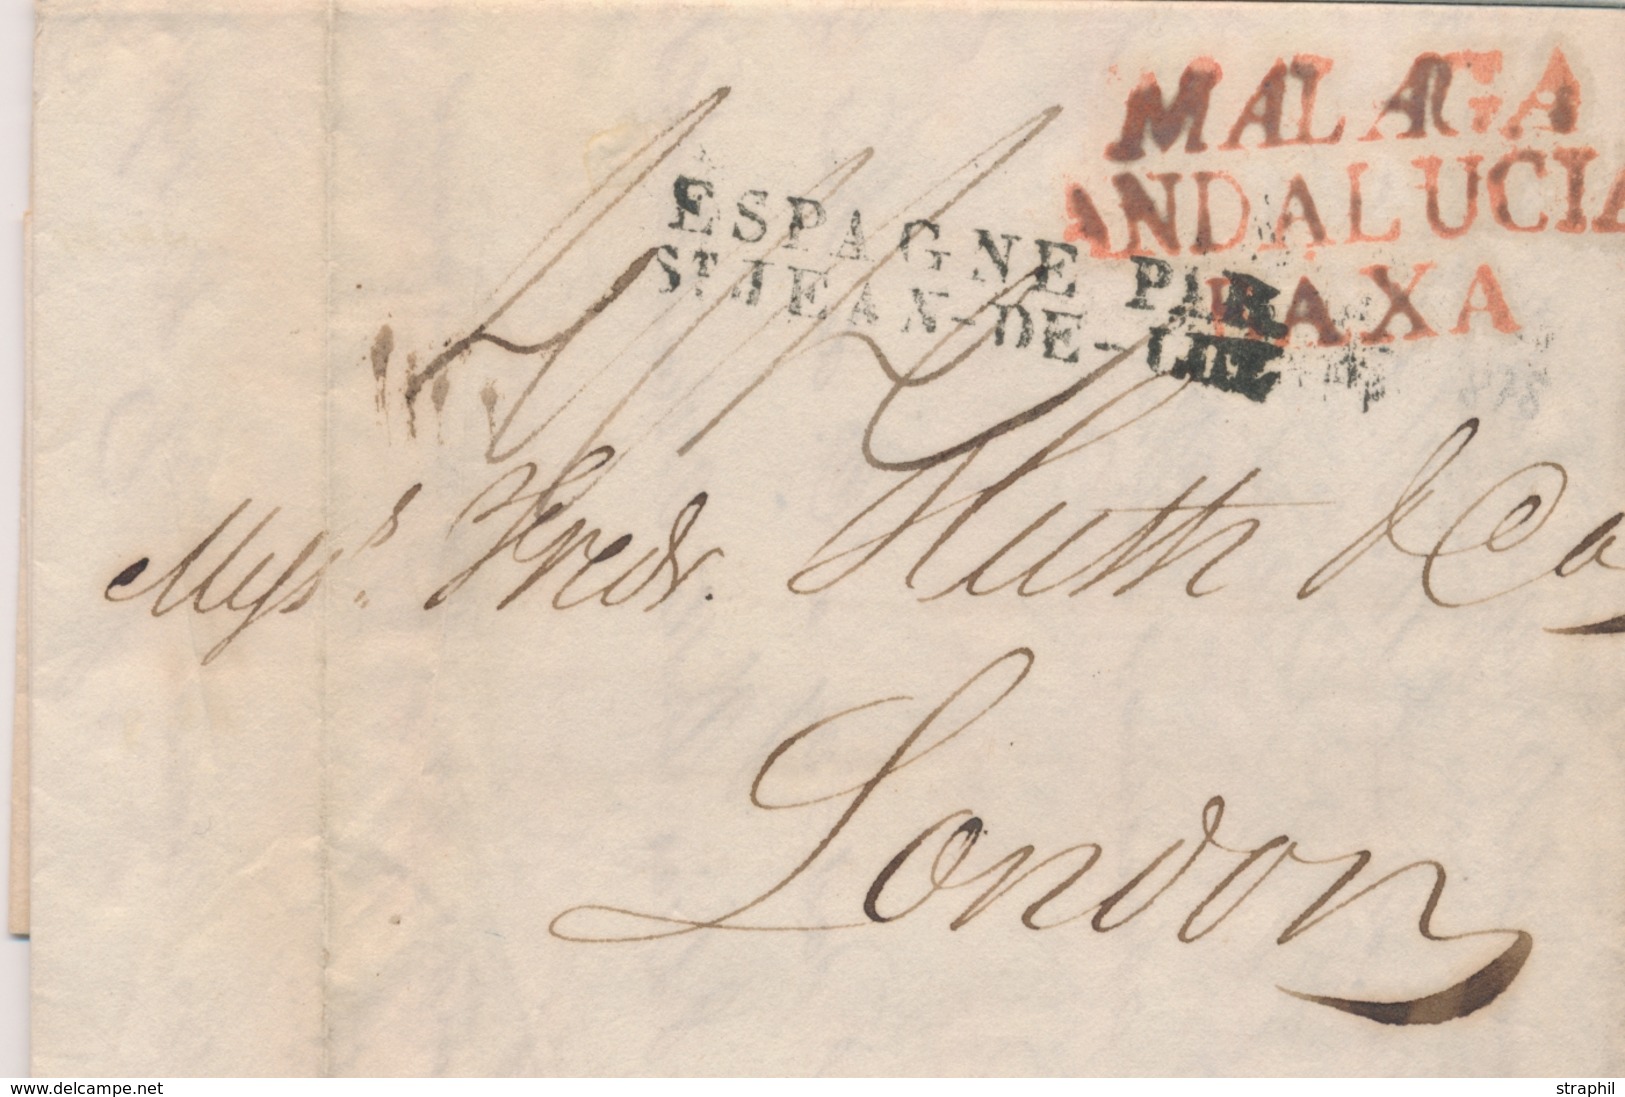 MALAGA
ANDALUCIA
BAXA
ESPAGNE PAR
ST JEAN-DE-LUZ
Messrs. Fredk. Huth & Co
London
www.delcampe.net
straphil